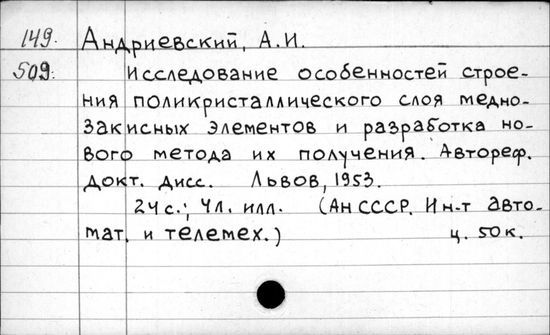 149. Андриевский, А.И.
509. Исследование особенностей строе-
ния поликристаллического слоя медно-
закисных элементов и разработка но-
вого метода их получения. Автореф.
докт. дисс. Львов, 1953.
24с.; 4л. илл. (АН СССР. Ин-т авто-
мат. и телемех.) ц. 50к.